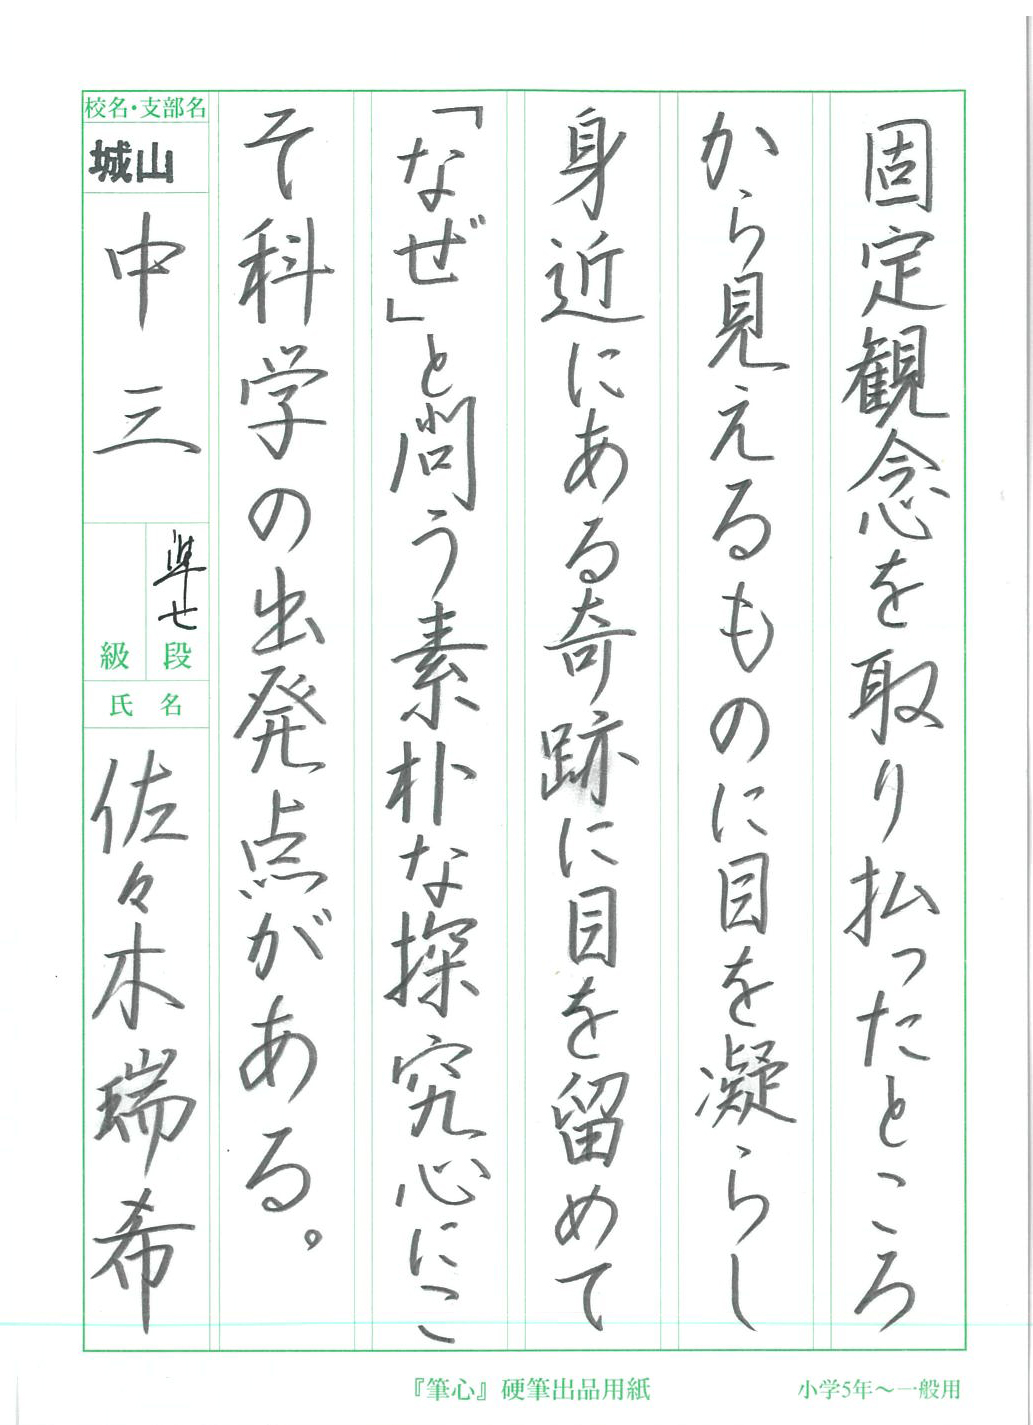 固定観念を取り払ったところ
から見えるものに目を凝らし
身近にある奇跡に目を留めて
「なぜ」と問う素朴な探究心にこ
そ科学の出発点がある。
校名・支部名
城山
中三
準七
段
級
氏名
佐々木瑞希
『筆心』硬筆出品用紙
小学5年〜一般用